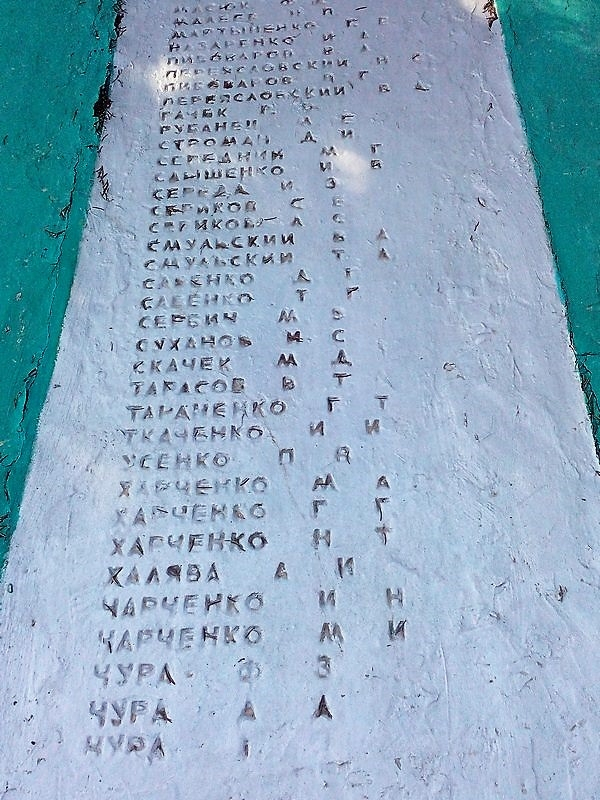 МАРТЫНЕНКО Г Г
НАЗАРЕНКО И А
ПИВОВАРОВ В А
ПЕРЕЯСЛОВСКИЙ И С
ПИВОВАРОВ П Г
ПЕРЕЯСЛОВСКИЙ В Д
ГАЧЕК Г В
РУБАНЕЙ Л Е
СТРОМАН Д И
СЕРЕДНИЙ М Г
СЛЫШЕНКО И В
СЕРЕДА И З
СЕРИКОВ С Е
СЕРИКОВ А С
СМУЛЬСКИЙ В А
СМУЛЬСКИЙ Т А
САВЕНКО Д І
САВЕНКО Т Г
СЕРБИЧ М З
СУХАНОВ И С
СКАЧЕК М Д
ТАРАСОВ В Т
ТАРАНЕНКО Г Т
ТКАЧЕНКО И И
УСЕНКО П Я
ХАРЧЕНКО М А
ХАРЧЕНКО Г Г
ХАРЧЕНКО Н Т
ХАЛЯВА А И
ЧАРЧЕНКО И Н
ЧАРЧЕНКО М И
ЧУРА Ф З
ЧУРА А А
ЧУРА І